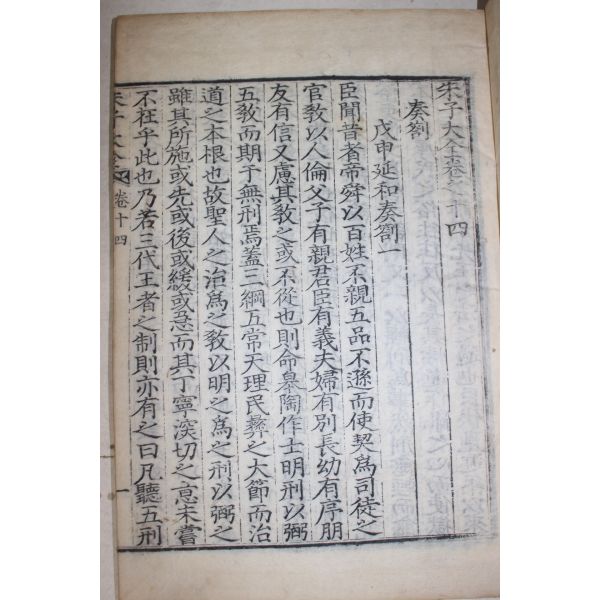 朱子大全卷之十四
奏劄
戊申延和奏劄一
臣聞昔者帝舜以百姓不親五品不遜而使契爲司徒之
官教以人倫父子有親君臣有義夫婦有別長幼有序朋
友有信又慮其敎之或不從也則命皐陶作士明刑以弼
五敎而期于無刑焉蓋三綱五常天理民彝之大節而治
道之本根也故聖人之治爲之敎以明之爲之刑以弼之
雖其所施或先或後或緩或急而其丁寧深切之意未嘗
不在乎此也乃若三代王者之制則亦有之曰凡聽五刑
朱子大全 卷十四 一